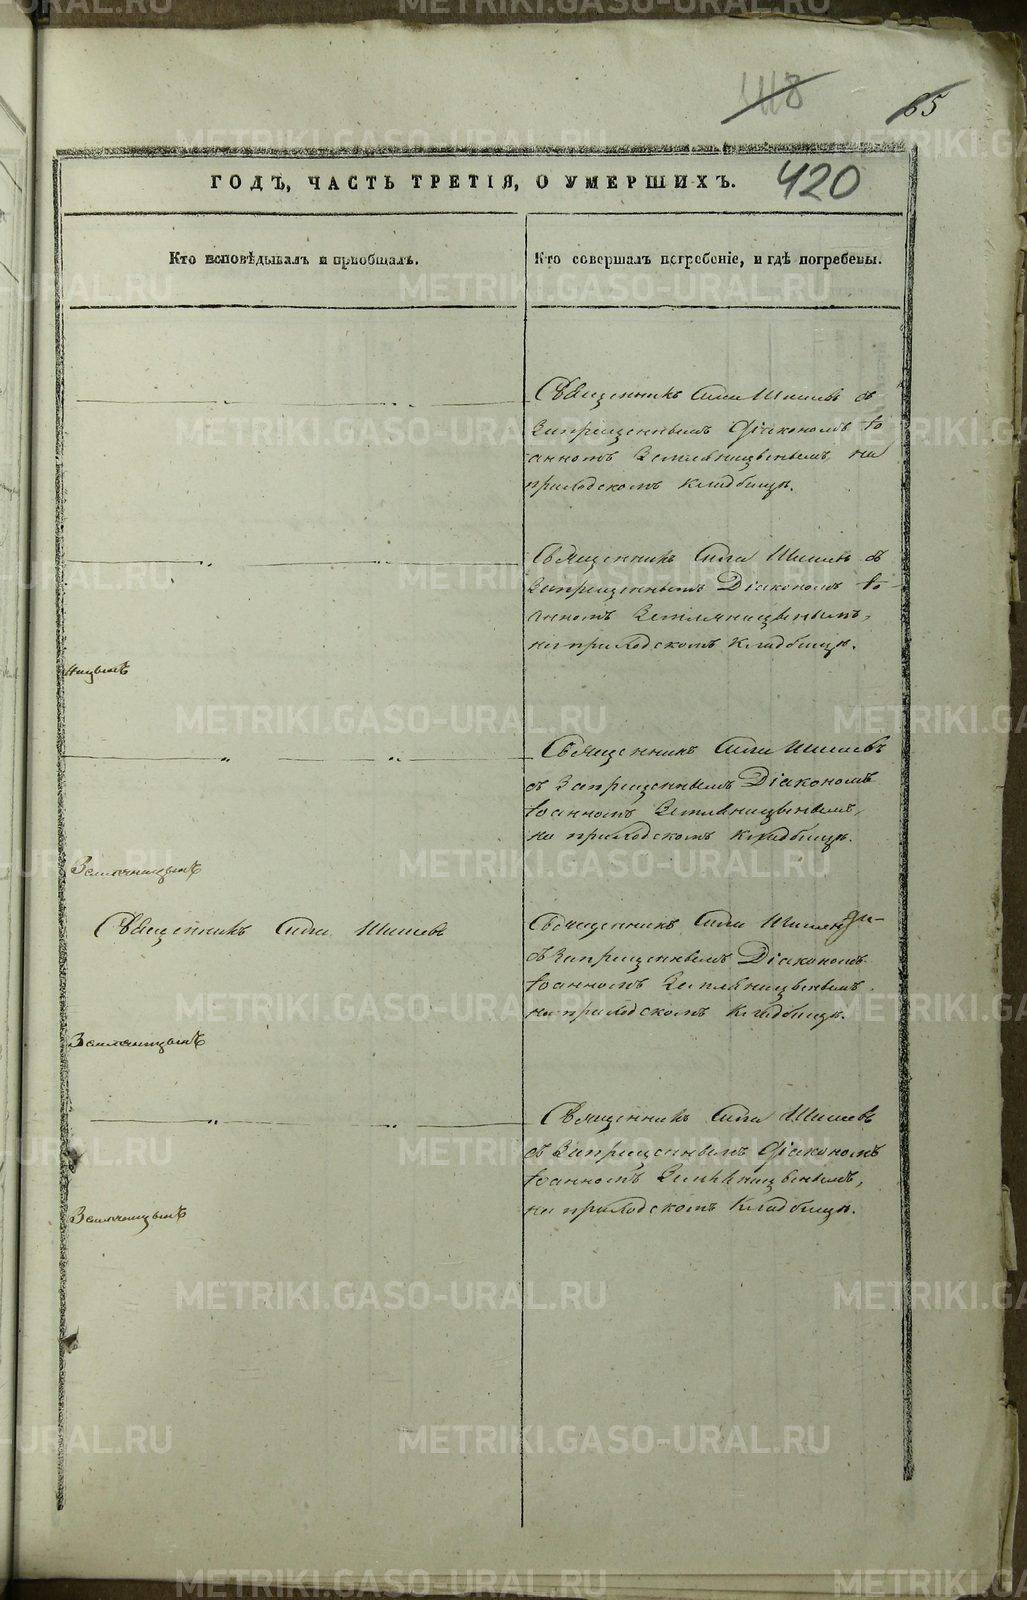 118
65
ГОДЪ, ЧАСТЬ ТРЕТІЯ, О УМЕРШИХЪ.
420
Кто исповѣдывалъ и пріобщалъ.
Кто совершалъ погребеніе, и гдѣ погребены.
Священникъ Сила Шишевъ съ
Запрещеннымъ Діакономъ Іо
анномъ Земляницынымъ, на
приходскомъ кладбищѣ.
Священникъ Сила Шишевъ съ
Запрещеннымъ Діакономъ Іо-
анномъ Земляницынымъ,
на приходскомъ кладбищѣ.
ницынъ
Священникъ Сила Шишевъ
съ Запрещеннымъ Діакономъ
Іоанномъ Земляницынымъ,
на приходскомъ кладбищѣ.
Земляницынъ
Священникъ Сила Шишевъ
Священникъ Сила
съ Запрещеннымъ Діакономъ
Іоанномъ Земляницынымъ,
на приходскомъ кладбищѣ.
Земляницынъ
Священникъ Сила Шишевъ
съ Запрещеннымъ Діакономъ
Іоанномъ Земляницынымъ,
на приходскомъ кладбищѣ.
Земляницынъ
METRIKI.GASO-URAL.RU